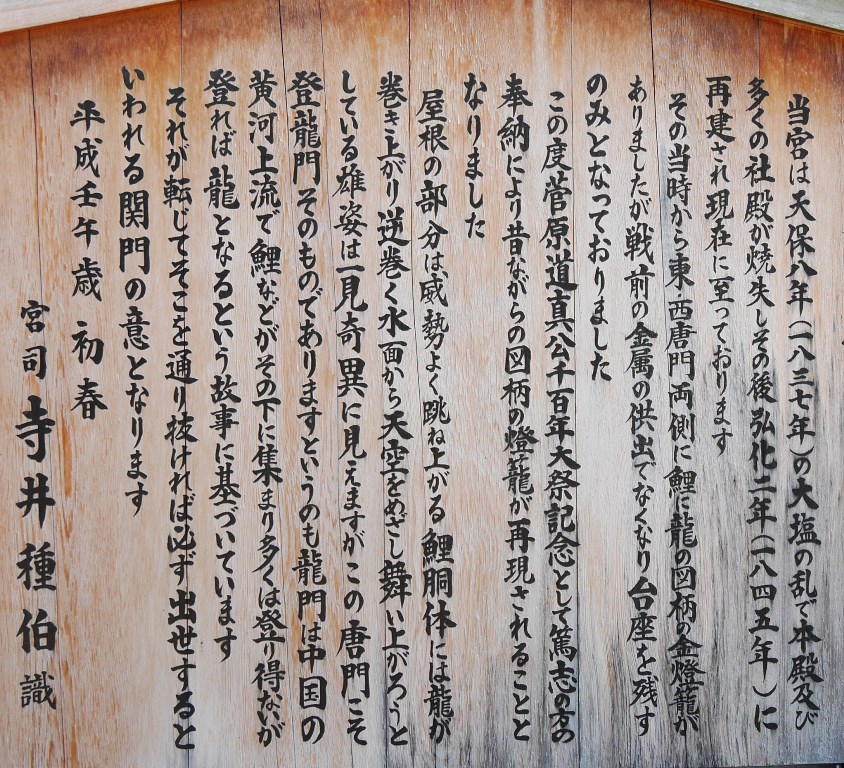 当宮は天保八年(一八三七年)の大塩の乱で本殿及び
多くの社殿が焼失しその後弘化二年(一八四五年)に
再建され現在に至っております
その当時から東・西唐門両側に鯉に龍の図柄の金燈籠が
ありましたが戦前の金属の供出でなくなり台座を残す
のみとなっておりました
この度菅原道真公千百年大祭記念として篤志の方の
奉納により昔ながらの図柄の燈籠が再現されることと
なりました
屋根の部分は威勢よく跳ね上がる鯉胴体には龍が
巻き上がり逆巻く水面から天空をめざし舞い上がろうと
している雄姿は一見奇異に見えますがこの唐門こそ
登龍門そのものでありますというのも龍門は中国の
黄河上流で鯉などがその下に集まり多くは登り得ないが
登れば龍となるという故事に基づいています
それが転じてそこを通り抜ければ必ず出世すると
いわれる関門の意となります
平成壬午歳 初春
宮司 寺井種伯 識